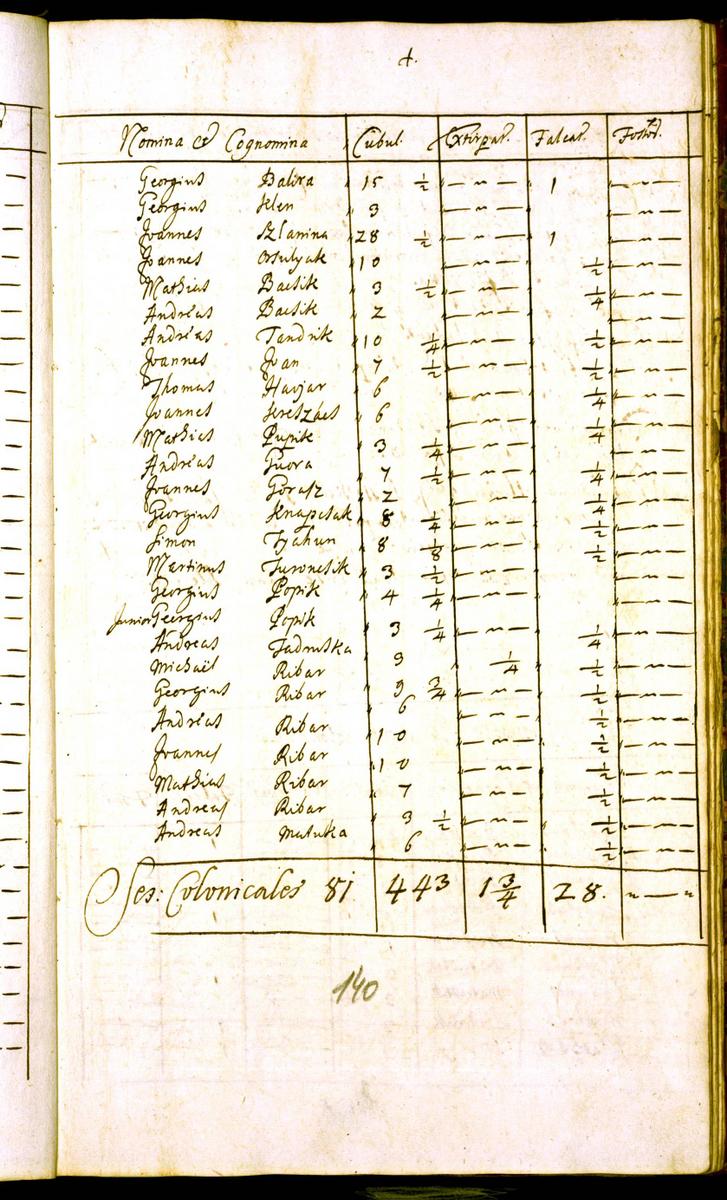 4.
Nomina & Cognomina Cubul. Extirpat. Falcat. Fossor.
Georgius Balira 15 ½ — " — 1 — " —
Georgius Jelen 3 — " —
Joannes Szlanina 28 ½ — " — 1 — " —
Joannes Orsulyak 10 — " — ½ — " —
Mathias Bacsik 3 ½ — " — ¼ — " —
Andreas Bacsik 2 — " — — " —
Andreas Tandrik 10 ¼ — " — ½ — " —
Joannes Joan 7 ½ — " — ½ — " —
Thomas Havjar 6 — " — ¼ — " —
Joannes Kereszles 6 — " — ¼ — " —
Mathias Pupik 3 ¼ — " — — " —
Andreas Guora 7 ½ — " — ¼ — " —
Joannes Gorasz 2 — " — ¼ — " —
Georgius Knapcsak 8 ¼ — " — ½ — " —
Simon Tyahun 8 ⅛ — " — ½ — " —
Martinus Turoncsik 3 ½ — " — — " —
Georgius Popik 4 ¼ — " — — " —
Junior Georgius Popik 3 ¼ — " — — " —
Andreas Fadruska 9 ¼ ¼ — " —
Michaël Ribar 9 ¾ — " — ½ — " —
Georgius Ribar 6 — " — ½ — " —
Andreas Ribar 10 — " — ½ — " —
Joannes Ribar 10 — " — ½ — " —
Mathias Ribar 7 — " — ½ — " —
Andreas Ribar 3 ½ — " — ½ — " —
Andreas Matuka 6 — " — ½ — " —
Ses: Colonicales 81 443 1 ¾ 28. " — "
140